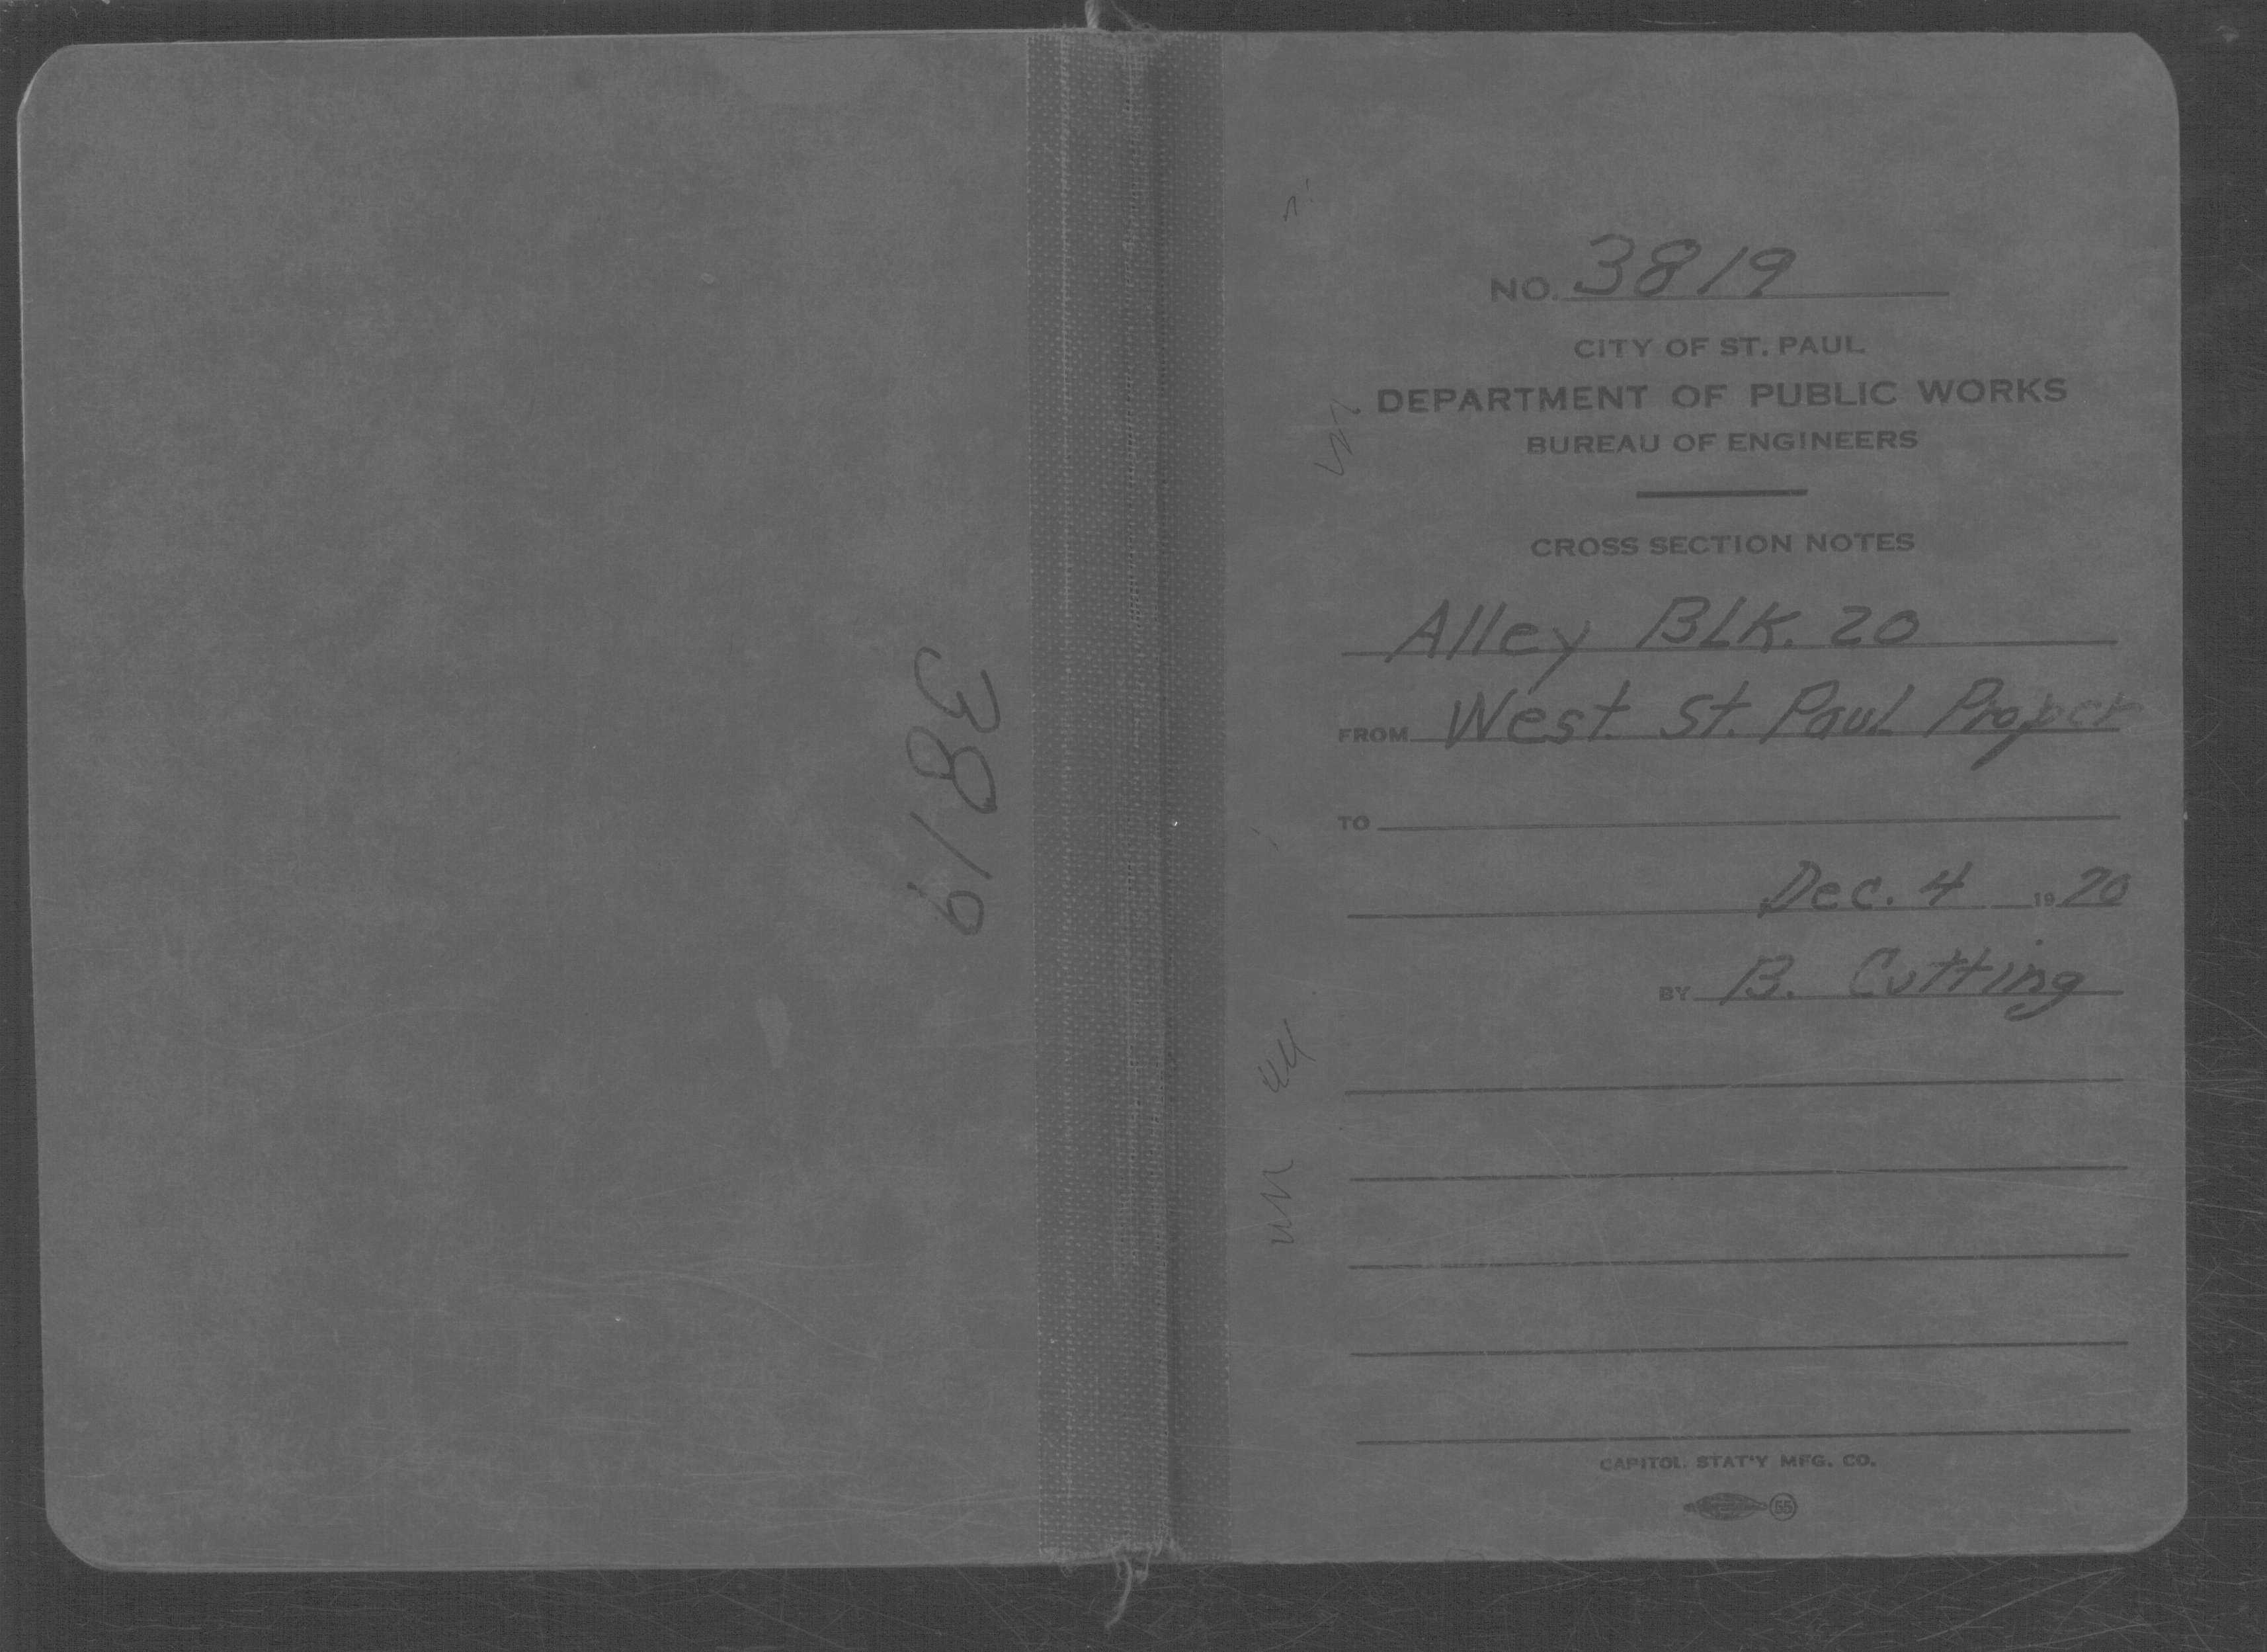 3819
NO. 3819
CITY OF ST. PAUL
DEPARTMENT OF PUBLIC WORKS
BUREAU OF ENGINEERS
CROSS SECTION NOTES
Alley BLK. 20
FROM West. St. Paul Proper
TO
Dec. 4 1920
BY B. Cutting
CAPITOL STAT'Y MFG. CO.
55